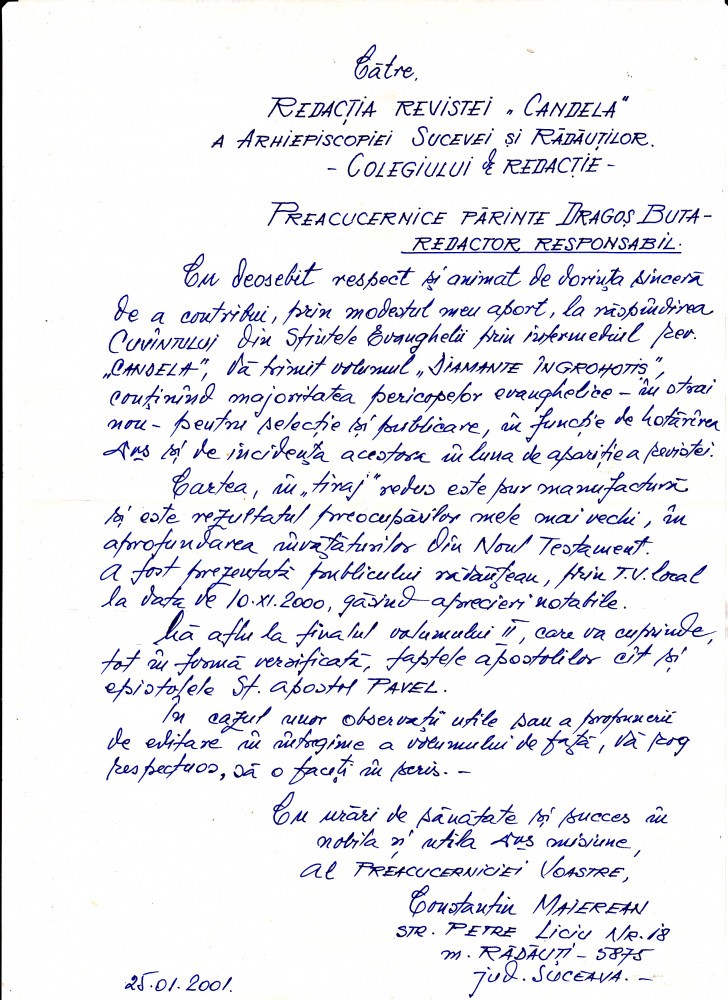 Către,
REDACȚIA REVISTEI „CANDELA"
A ARHIEPISCOPIEI SUCEVEI ȘI RĂDĂUȚILOR.
- COLEGIULUI de REDACȚIE -
PREACUCERNICE PĂRINTE DRAGOȘ BUTA-
REDACTOR RESPONSABIL.
Cu deosebit respect și animat de dorința sinceră
de a contribui, prin modestul meu aport, la răspîndirea
CUVÎNTULUI din Sfintele Evanghelii prin intermediul rev.
„CANDELA", Vă trimit volumul „DIAMANTE ÎN GROHOTIȘ",
conținînd majoritatea pericopelor evanghelice - în strai
nou - pentru selecție și publicare, în funcție de hotărîrea
Dvs și de incidența acestora în luna de apariție a revistei.
Cartea, în „tiraj" redus este pur manufactură
și este rezultatul preocupărilor mele mai vechi, în
aprofundarea învățăturilor din Noul Testament.
A fost prezentată publicului rădăuțean, prin T.V. local
la data de 10.XI.2000, găsind aprecieri notabile.
Mă aflu la finalul volumului II, care va cuprinde,
tot în formă versificată, faptele apostolilor cît și
epistolele Sf. apostol PAVEL.
În cazul unor observații utile sau a propunerii
de editare în întregime a volumului de față, Vă rog
respectuos, să o faceți în scris. -
Cu urări de sănătate și succes în
nobila și utila Dvs misiune,
al PREACUCERNICIEI VOASTRE,
Constantin MAIEREAN
STR. PETRE LICIU NR. 18
m. RĂDĂUȚI - 5875
jud. SUCEAVA. -
25.01.2001.